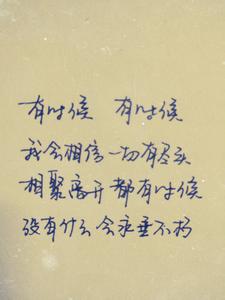 有时候 有时候
我会相信一切有尽头
相聚离开都有时候
没有什么会永垂不朽